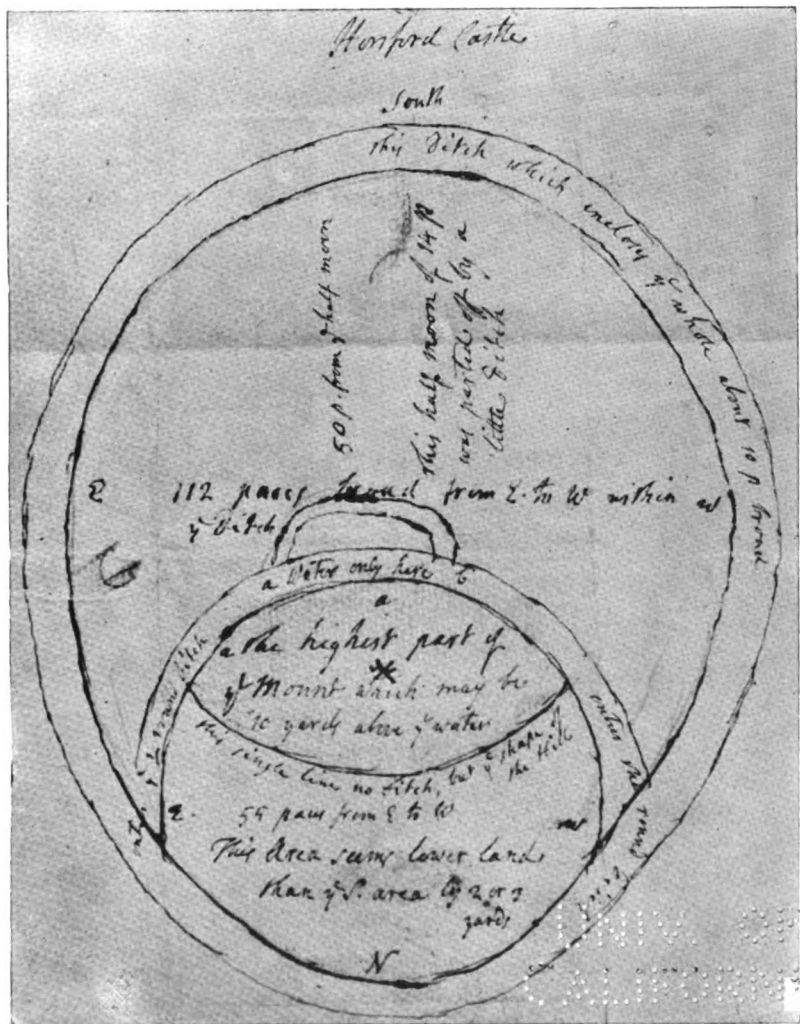 Horsford Castle
South
This Ditch which encloses yͤ whole about 10 p broad
50 p. from yͤ half moon
This half moon of 14 p
was parted off by a
little Ditch
E
112 paces broad from E. to W within
yͤ Ditch
W
a Water only here to
a
a the highest part of
yͤ Mount which may be
10 yards above yͤ water
This single line no Ditch, but yͤ shape of
the Hill
round ditch
enters the round Ditch
E.
55 paces from E to W
W
This Area seems lower land
than yͤ S. area by 2 or 3
yards
N
UNIV. OF
CALIFORNIA